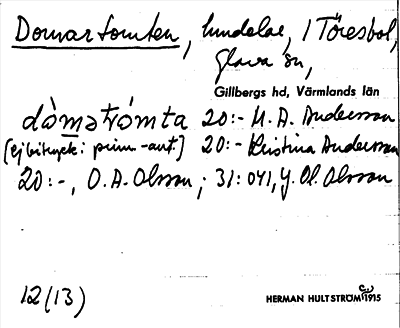 Domartomten, lindelar, / Töresbol,
Glava sn,
Gillbergs hd, Värmlands län
dòmatrómta 20:- M. A. Andersson
[ej bitryck: prim.-ant.] 20:- Kristina Andersson
20:-, O. A. Olsson; 31: 041, J. Ol. Olsson
12 (13)
HERMAN HULTSTRÖM 1915